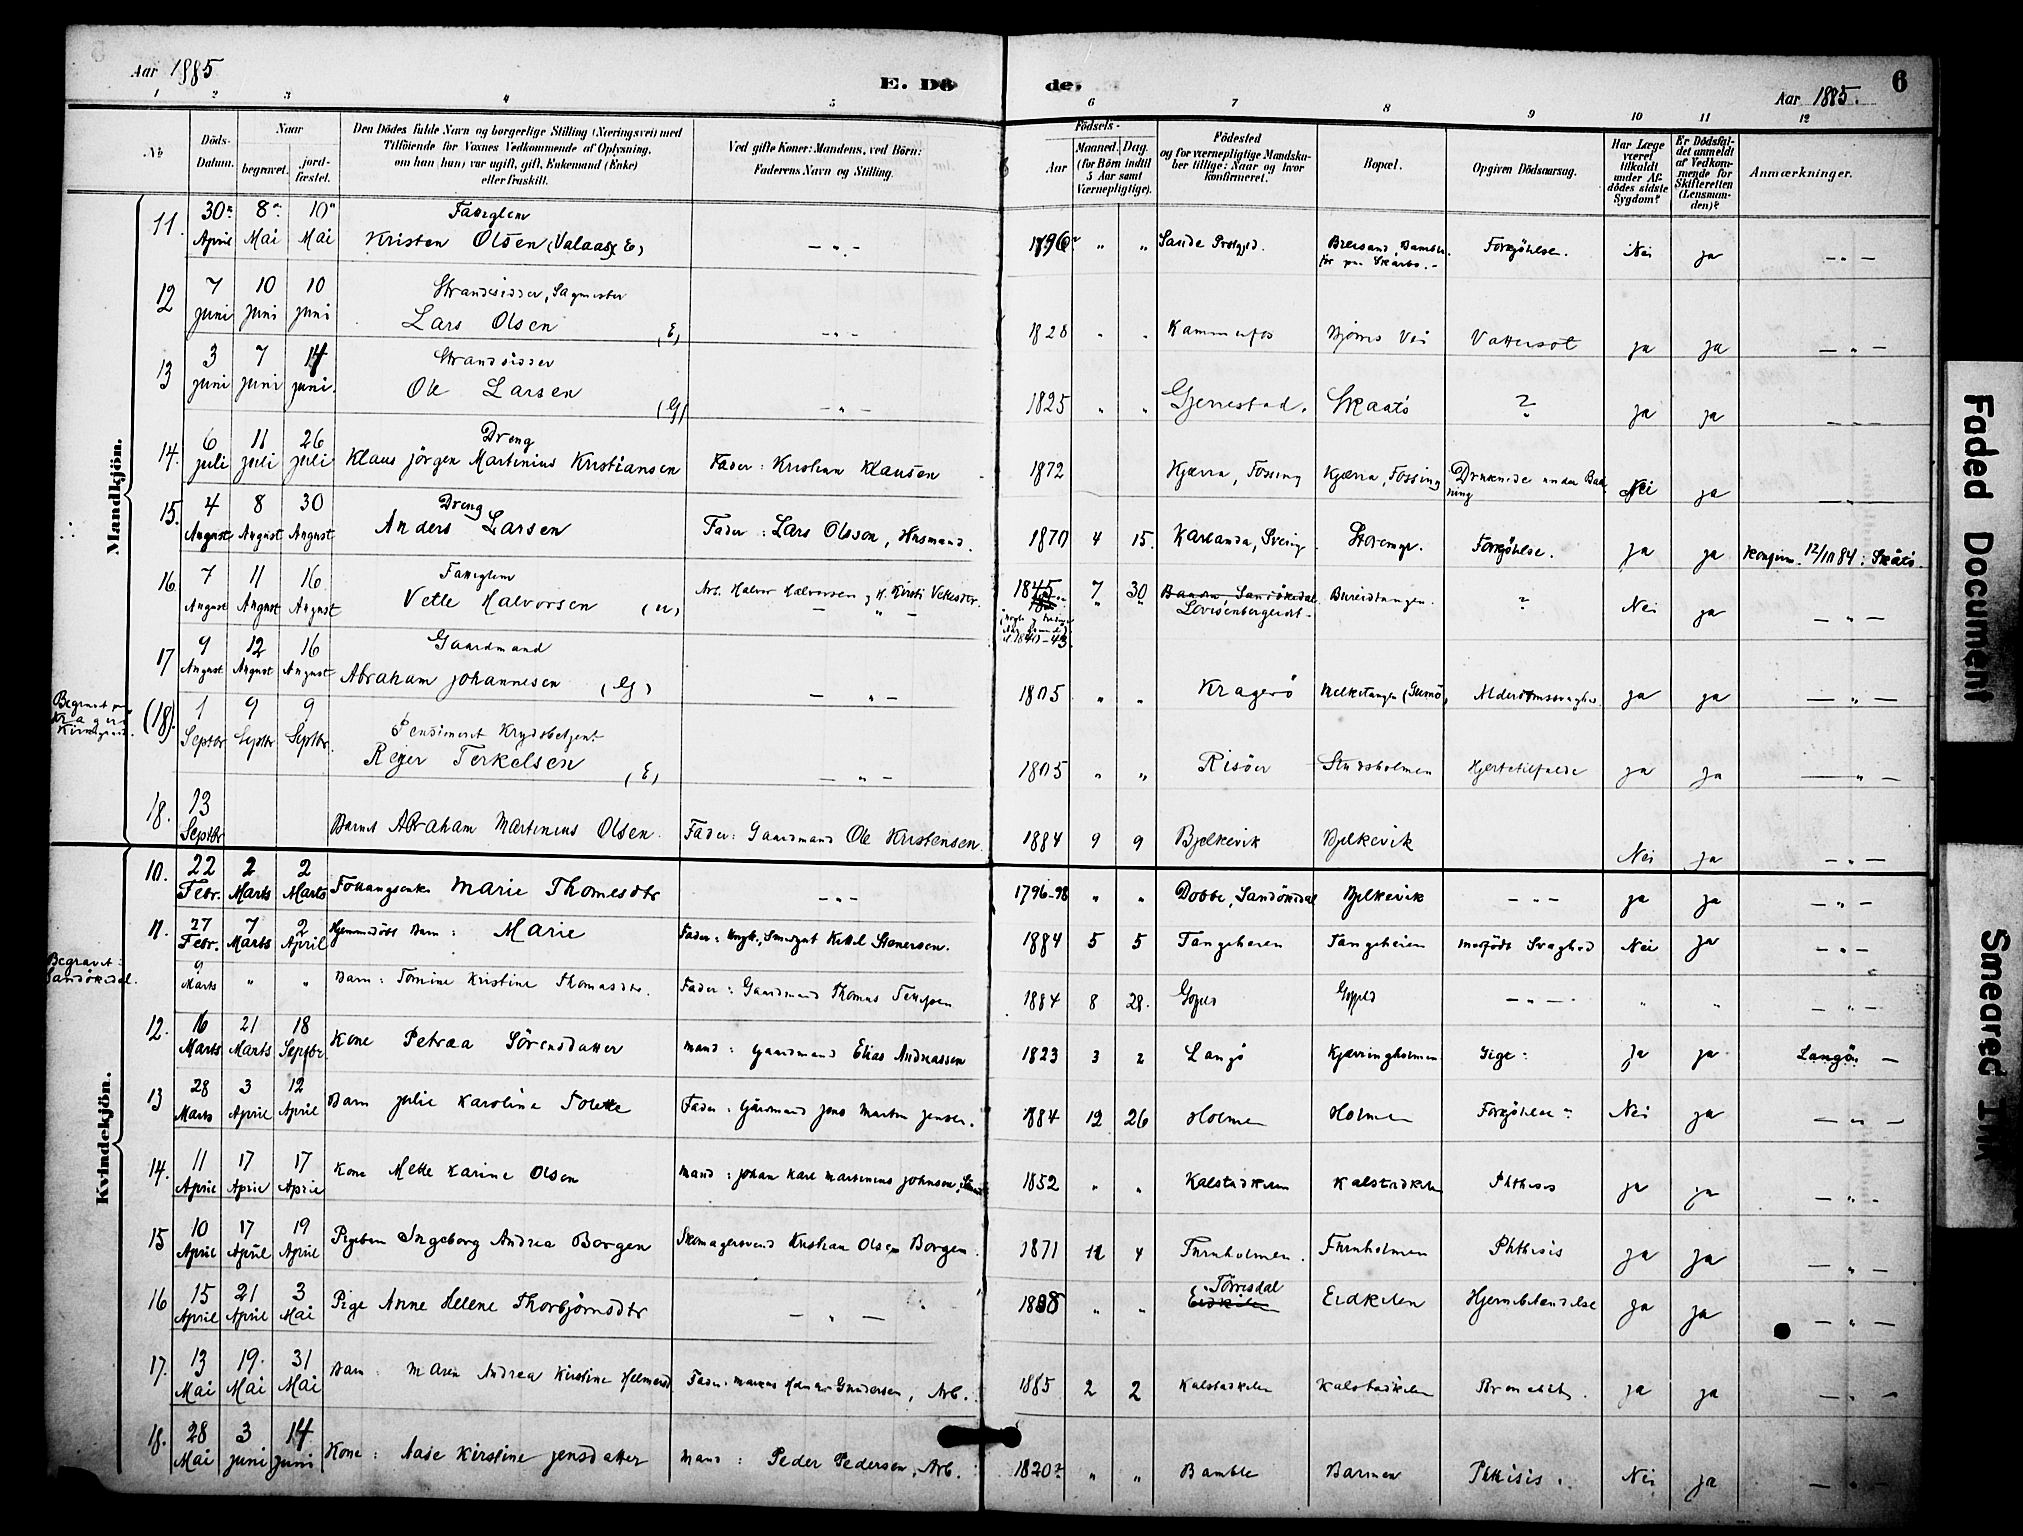 Aar 1885
E. Dö de.
Aar 1885.
6
1 2 3 4 5 6 7 8 9 10 11 12
No
Döds-Datum.
Naar
begravet.
jord-fæstet.
Den Dödes fulde Navn og borgerlige Stilling (Næringsvei) med
Tilföiende for Voxnes Vedkommende af Oplysning,
om han (hun) var ugift, gift, Enkemand (Enke)
eller fraskilt.
Ved gifte Koner: Mandens, ved Börn:
Faderens Navn og Stilling.
Födsels-
Aar
Maaned. Dag.
(for Börn indtil
5 Aar samt
Værnepligtige).
Födested
og for værnepligtige Mandska-
ber tillige: Naar og hvor
konfirmeret.
Bopæl.
Opgiven Dödsaarsag.
Har Læge
været
tilkaldt
under Af-
dödes sidste
Sygdom?
Er Dödsfal-
det anmeldt
af Vedkom-
mende for
Skifteretten
(Lensman-
den)?
Anmærkninger.
Mandkjön.
11. 30 April 8 Mai 10 Mai Fattiglem
Kristen Olsen (Valaas) (E) — " — 1796 " " Sande Prstgjd. Nei ja — " —
12 7 juni 10 juni 10 juni Strandsidder, Sagmester
Lars Olsen (E) — " — 1828 " " Kammerfos Bjørns Vei Vattersot ja ja — " —
13 3 juni 7 juni 14 juni. Strandsidder
Ole Larsen (G) — " — 1825 " " Gjerrestad. Skaatö ? ja ja — " —
14. 6 juli 11 juli 26 juli Dreng
Klaus jörgen Martinius Kristiansen Fader: Kristian Klausen 1872 Kjærra, Fossing Kjærra, Fossing Druknede under Bad-
ning Nei ja — " —
15. 4 August 8 August 30 August Dreng
Anders Larsen Fader: Lars Olsson, Husmand. 1870 4 15. Karlanda, Sverig. Forkjölelse. ja ja Konfirm. 12/10 84: Skåtö.
16. 7 August 11 August 16 August Fattiglem
Vetle Halvorsen (u) Arb. Halvor Halvorsen og H. Kirsti Vetlesdtr. 1845 7 30 Sandökedal
Lovisenberg Bureidtangen. ? Nei ja — " —
17 9 August 12 August 16 August Gaardmand
Abraham johannesen (G) — " — 1805 " " Kragerö ja ja — " —
Begravet
Kragerö
Kirkegaard.
(18). 1 Septbr 9 Septbr 9 Septbr. Pensioneret Krydsbetjent
Rejer Terkelsen (E) — " — 1805 " " Risöer Studsholmen Hjertetilfælde ja ja — " —
18. 13 Septbr Barnet Abraham Martinius Olsen. Fader: Gaardmand Ole Kristensen. 1884 9 9 Bjelkevik Bjelkevik Nei ja — " —
Kvindekjön.
10. 22 Febr. 2 Marts 2 Marts Marie Thomesdtr — " — 1796-98 " " Dobbe, Sandökedal Bjelkevik — " — ja ja — " —
11. 27 Febr. 7 Marts 2 April Hjemmedöbt Barn: Marie Fader: Ungk., Smedgut Kittel Stenersen. 1884 5 5 Tangeheien Tangeheien medfödt Svaghed Nei ja — " —
Begravet:
Sandökedal.
9 Marts " " Barn: Tomine Kristine Thomasdtr. Fader: Gaardmand Thomas Tellefsen 1884 8 28. — " — " " — " —
12. 16 Marts 21 Marts 18 Septbr. Kone Petræa Sörensdatter Mand: Gaardmand Elias Andreassen 1823 3 2 Langö Kjærringholmen Gigt: ja ja Langöen —
13 28 Marts 3 April 12 April Barn julie Karoline Tolette Fader: Gårdmand jens Martin jensen. 1884 12 26 Holmen Holmen Forkjölelse Nei ja — " —
14. 11 April 17 April 17 April Kone Mette Karine Olsen Mand: johan Karl Martinius johnsen, 1852 " " Kalstadkilen Kalstadkilen Phthisis ja ja — " —
15 10 April 17 April 19 April Pigebarn Ingeborg Andrea Borgen Skomagersvend Kristian Olsen Borgen. 1871 12 4 Furuholmen. Furuholmen Phthisis ja ja — " —
16 15 April 21 April 3 Mai Pige Anne Helene Thorbjörnsdtr — " — 1838 " " Törrisdal
Eidkilen Eidkilen Hjernebetændelse ja ja — " —
17. 13 Mai 19. Mai 31 Mai Barn: Maren Andrea Kirstine Helmersd Gundersen, Arb. 1885 2 2 Kalstadkilen Kalstadkilen Bronchit. ja ja — " —
18. 28 Mai 3 juni 14 juni Kone: Aase Kirstine jensdatter Mand: Peder Pedersen, Arb. 1820? " " Bamble Barmen Phthisis. Nei ja — " —
Faded Document
Smeared Ink